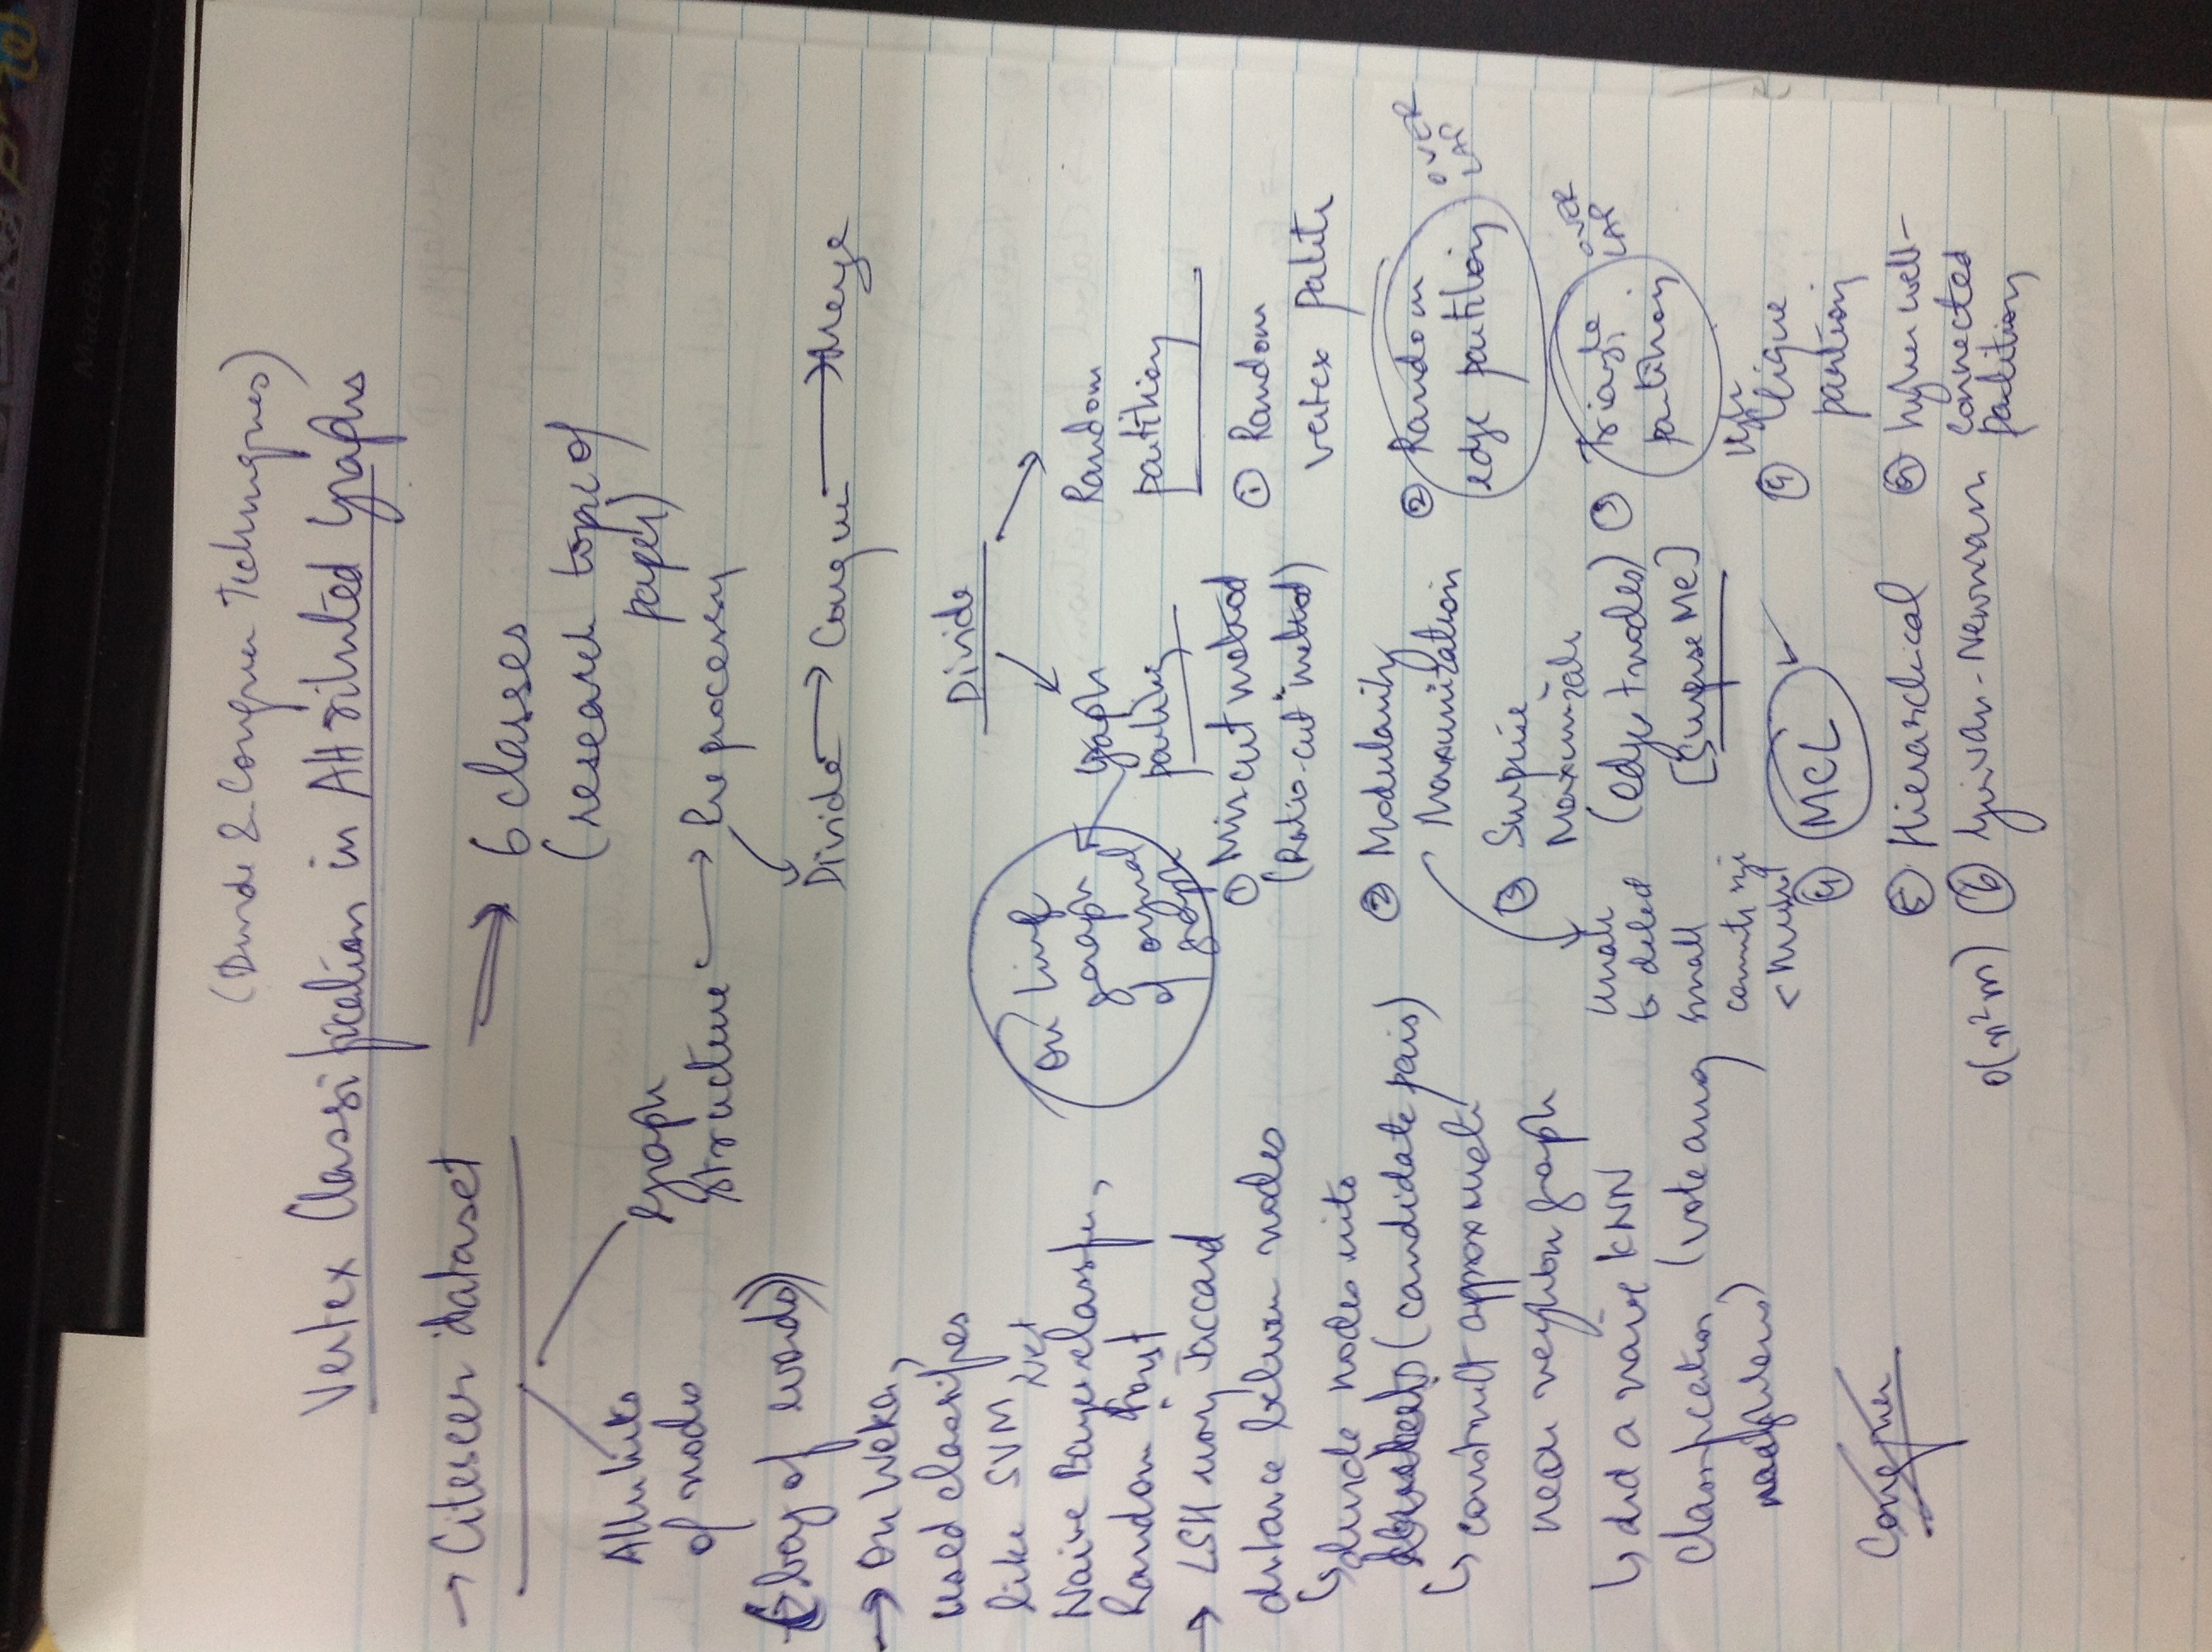 MacBook Pro
(Divide & Conquer Techniques)
Vertex Classification in Attributed Graphs
→ Citeseer dataset
⇒ 6 classes
(research topic of
paper)
Attributes
of nodes
(bag of words)
Graph
structure → Preprocessing
Divide → Conquer → Merge
→ On Weka,
used classifiers
like SVM,
Naive Bayes classifier,
Random Forest
→ LSH using Jaccard
distance between nodes
↳ divide nodes into
(candidate pairs)
↳ construct approximate
near neighbor graph
↳ did a naive KNN
Classification (vote among
neighbors)
Conquer
Divide
On line
graph
of original
graph
Graph
parting
① Min cut method
(Ratio-cut method)
② Modularity
Maximization
unable
to detect
small
③ Surprise
Maximizate
(edges + nodes)
[Surprise Me]
④ MCL
⑤ Hierarchical
O(n²m) ⑥ Girvan-Newman
Random
partitioning
① Random
vertex
② Random
edge partitioning
OVER
LAP
③ Triangle
partitioning
OVER
LAP
④ Clique
partioning
⑤ higher well-
connected
partitioning